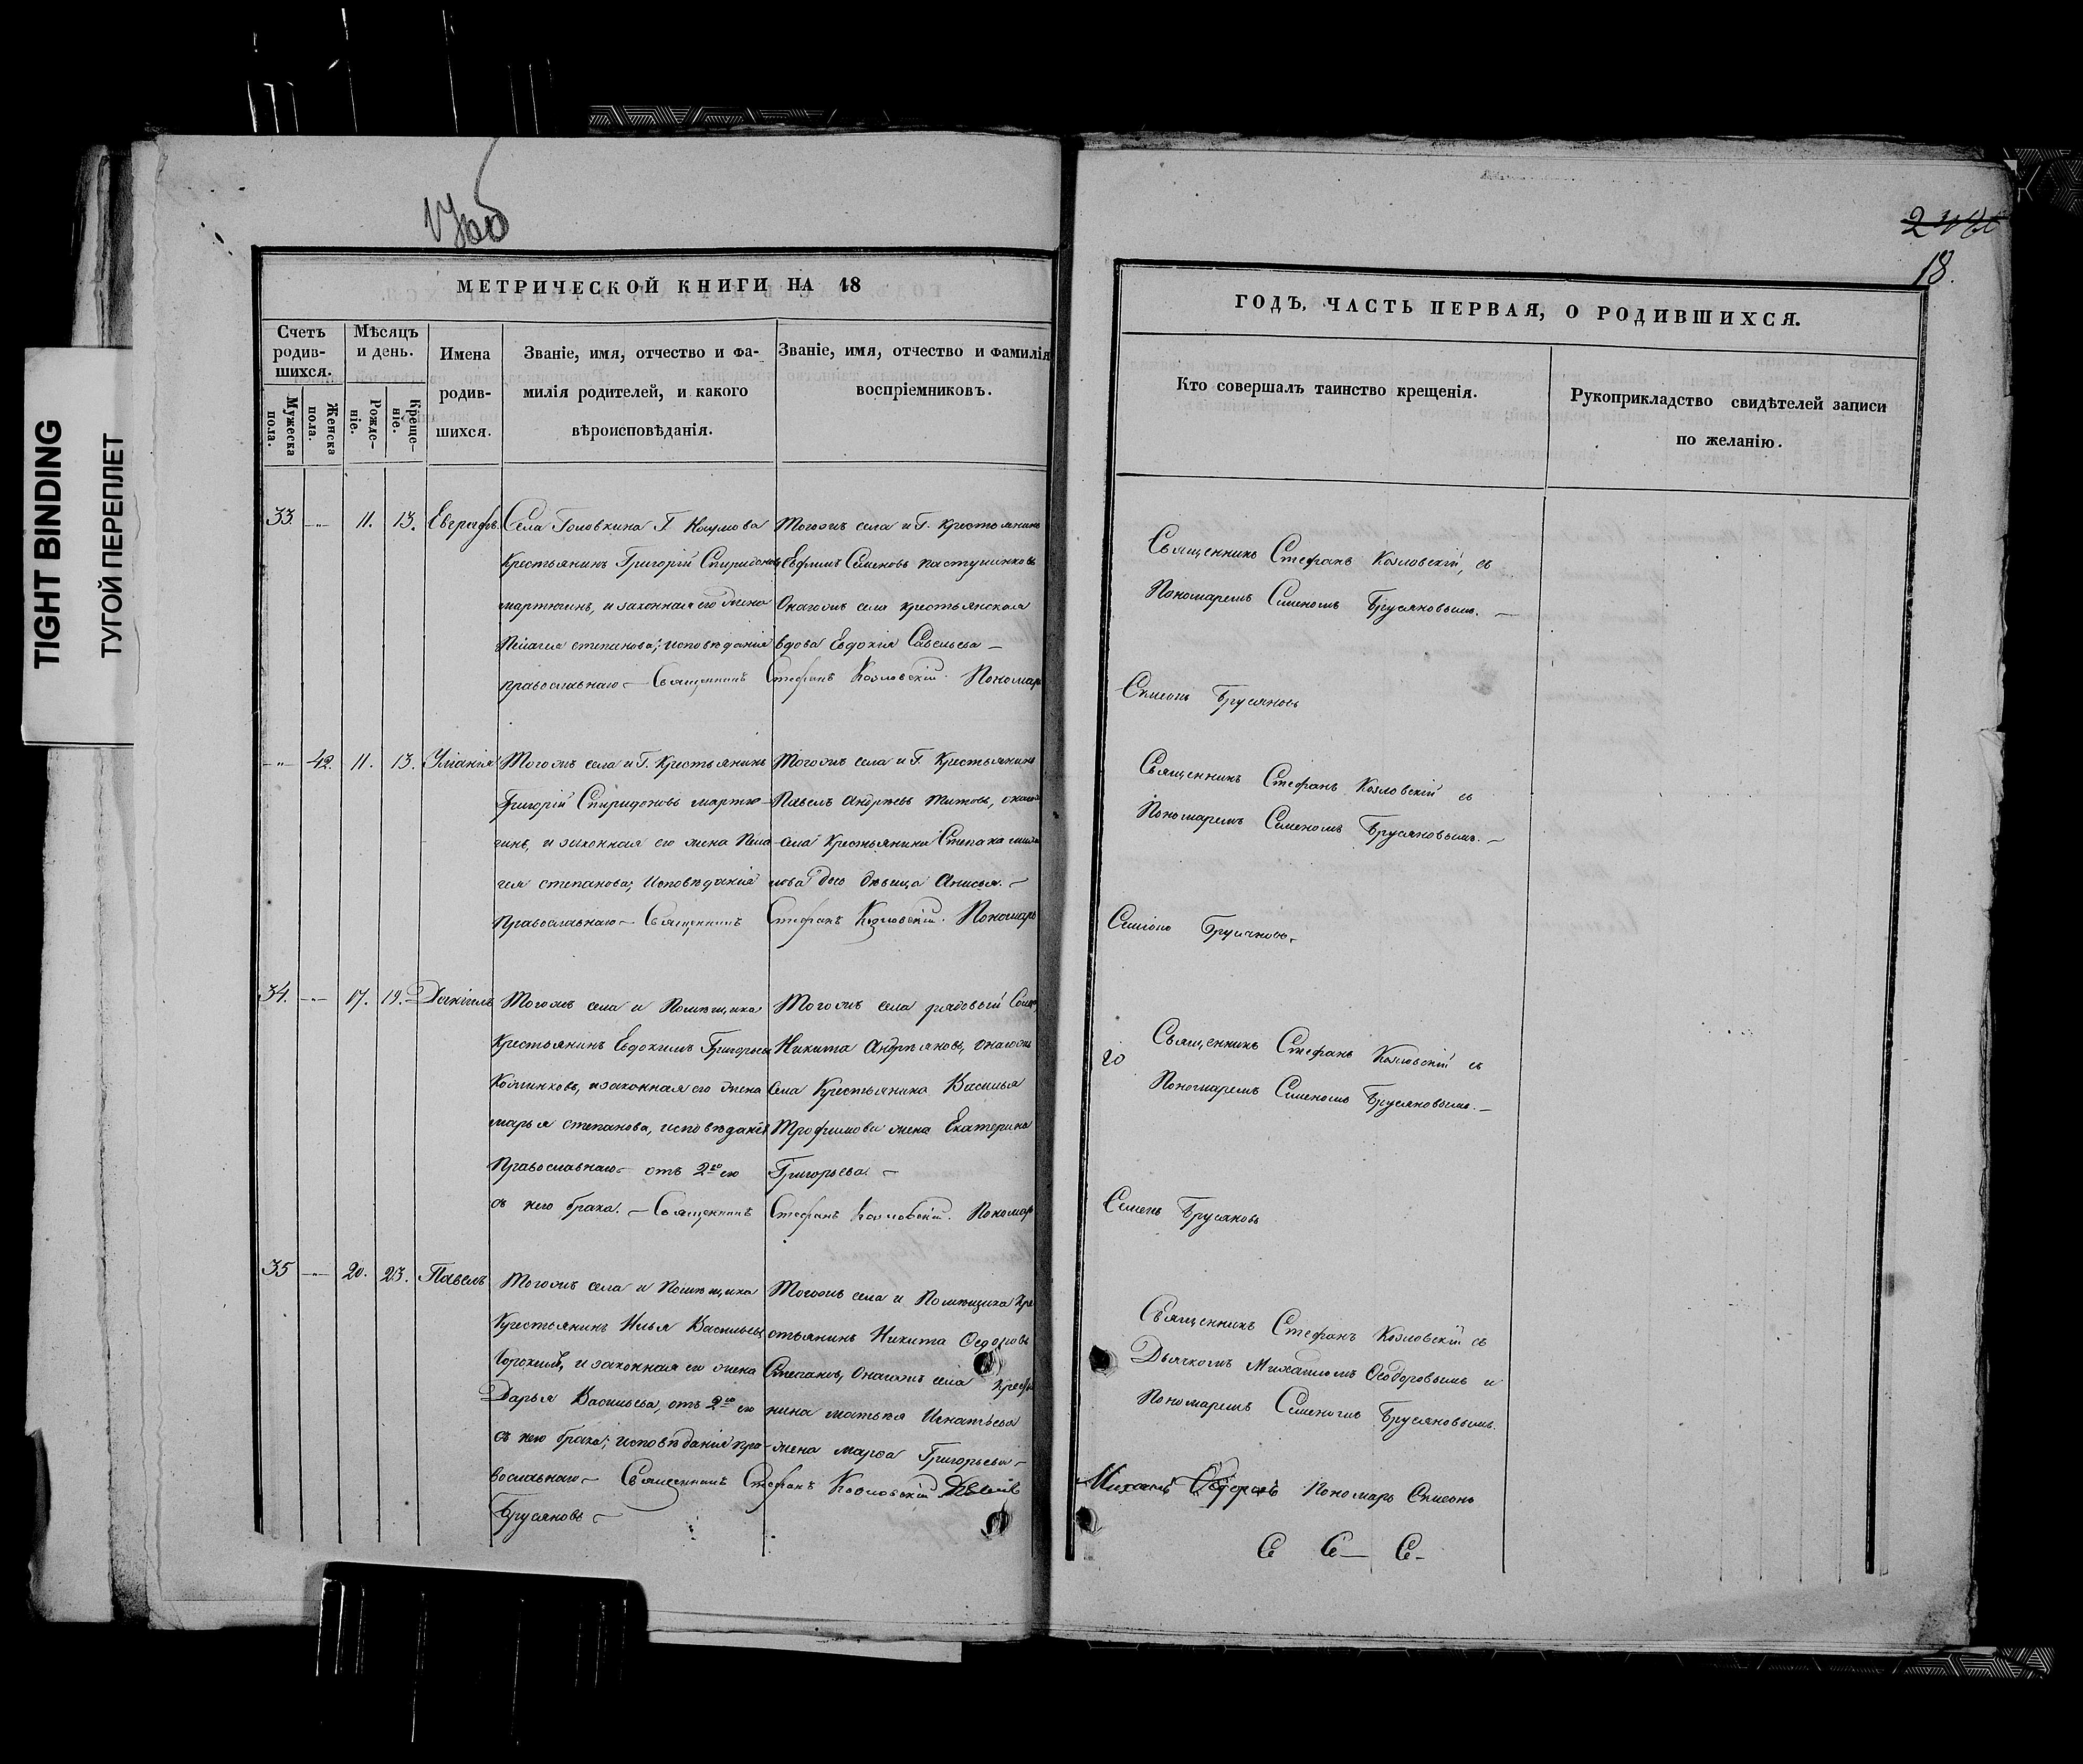 TIGHT BINDING
ТУГОЙ ПЕРЕПЛЕТ
18.
МЕТРИЧЕСКОЙ КНИГИ НА 18
Счетъ родив-шихся.
Мужеска пола.
Женска пола.
Мѣсяцъ и день.
Рожде-ніе.
Креще-ніе.
Имена родив-шихся.
Званіе, имя, отчество и фа-
милія родителей, и какого
вѣроисповѣданія.
Званіе, имя, отчество и фамилія
воспріемниковъ.
ГОДЪ, ЧАСТЬ ПЕРВАЯ, О РОДИВШИХСЯ.
Кто совершалъ таинство крещенія.
Рукоприкладство свидѣтелей записи
по желанію.
33. 11. 13. Евграфъ
Села Головкина Г. Наумова
Крестьянинъ Григорій Спиридоновъ
мартюгинъ, и законная его жена
Степанова; исповѣданія
православнаго – Священникъ Стефанъ Козловскій. Пономарь
Тогожъ села и Г. Крестьянинъ
Ефимъ Семеновъ
Онагожъ села крестьянская
вдова Евдокія Савельева –
Священникъ Стефанъ Козловскій, съ
Пономаремъ Семеномъ Брусяновымъ. –
Симеонъ Брусяновъ
42. 11. 13. Уліанія
Тогожъ села и Г. Крестьянинъ
Григорій Спиридоновъ мартю-
гинъ, и законная его жена Пела-
гия степанова; Исповѣданія
Православнаго – Священникъ Стефанъ Козловскій. Пономарь
Тогожъ села и Г. Крестьянинъ
Павелъ Андреевъ Титовъ,
села Крестьянина Степана
дѣвица Анисья. –
Священникъ Стефанъ Козловскій съ
Пономаремъ Семеномъ Брусяновымъ. –
Симеонъ Брусяновъ
34. 17. 19. Даніилъ
Тогожъ села и Помѣщика
Крестьянинъ Евдокимъ Григорьевъ
и законная его жена
марья степанова, исповѣданія
Православнаго – отъ 2го ею
съ нею брака. – Священникъ Стефанъ Козловскій. Пономарь
Тогожъ села рядовый
Никита Андреяновъ, онагожъ
села Крестьянина Василья
Трофимова жена Екатерина
Григорьева. –
Священникъ Стефанъ Козловскій съ
Пономаремъ Семеномъ Брусяновымъ. –
Семенъ Брусяновъ
35 20. 23. Павелъ
Тогожъ села и Помѣщика
Крестьянинъ Илья Васильевъ
и законная его жена
Дарья Васильева, отъ 2го ею
съ нею брака; исповѣданія пра-
вославнаго – Священникъ Стефанъ Козловскій
Брусяновъ –
Тогожъ села и Помѣщика Кре
стьянинъ Никита Федоровъ
Степановъ, Онагожъ села Крестья
нина матвея Игнатьева
жена марѳа Григорьева –
Священникъ Стефанъ Козловскій съ
Дьячкомъ Михаиломъ Ѳеодоровымъ и
Пономаремъ Семеномъ Брусяновымъ.
Михаилъ Пономарь Симеонъ